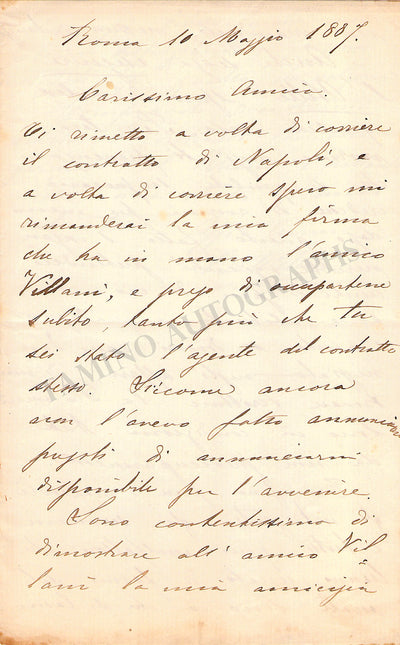 Roma 10 Maggio 1887.
Carissimo Amico.
Ti rimetto a volta di corriere
il contratto di Napoli, e
a volta di corriere spero mi
rimanderai la mia firma
che ha in mano l'amico
Villani, e prego di occupartene
subito, tanto più che tu
sei stato l'agente del contratto
stesso. Siccome ancora
non l'avevo fatto annunciare
pregoti di annunciarmi
disponibile per l'avvenire.
Sono contentissimo di
dimostrare all'amico Vil=
lani la mia amicizia
TAMINO AUTOGRAPHS